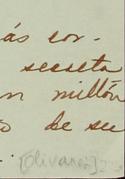 ás cor-
secreta
n millón
o de su
[Olivares]